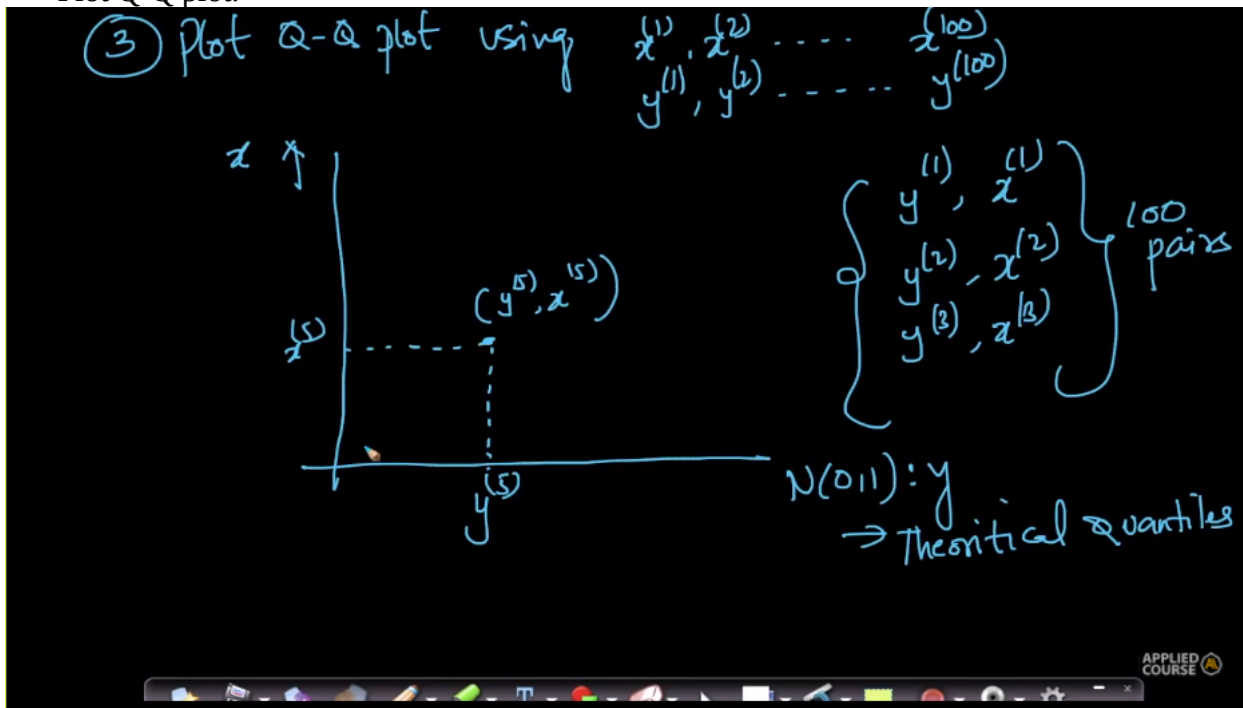 ③ Plot Q-Q plot using x^(1), x^(2) .... x^(100)
y^(1), y^(2) ...... y^(100)
x ↑
y^(1), x^(1)
y^(2), x^(2)
y^(3), x^(3)
100 pairs
(y^(5), x^(5))
x^(5)
y^(5)
N(0,1) : y
→ Theoritical Quantiles
APPLIED
COURSE